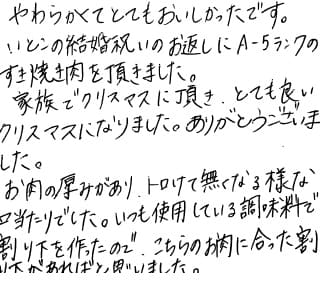 やわらかくてとてもおいしかったです。
いとこの結婚祝いのお返しにA-5ランクの
すき焼き肉を頂きました。
家族でクリスマスに頂き、とても良い
クリスマスになりました。ありがとうございま
した。
お肉の厚みがあり、トロけて無くなる様な
口当たりでした。いつも使用している調味料で
割り下を作ったので、こちらのお肉に合った割
り下があればと思いました。